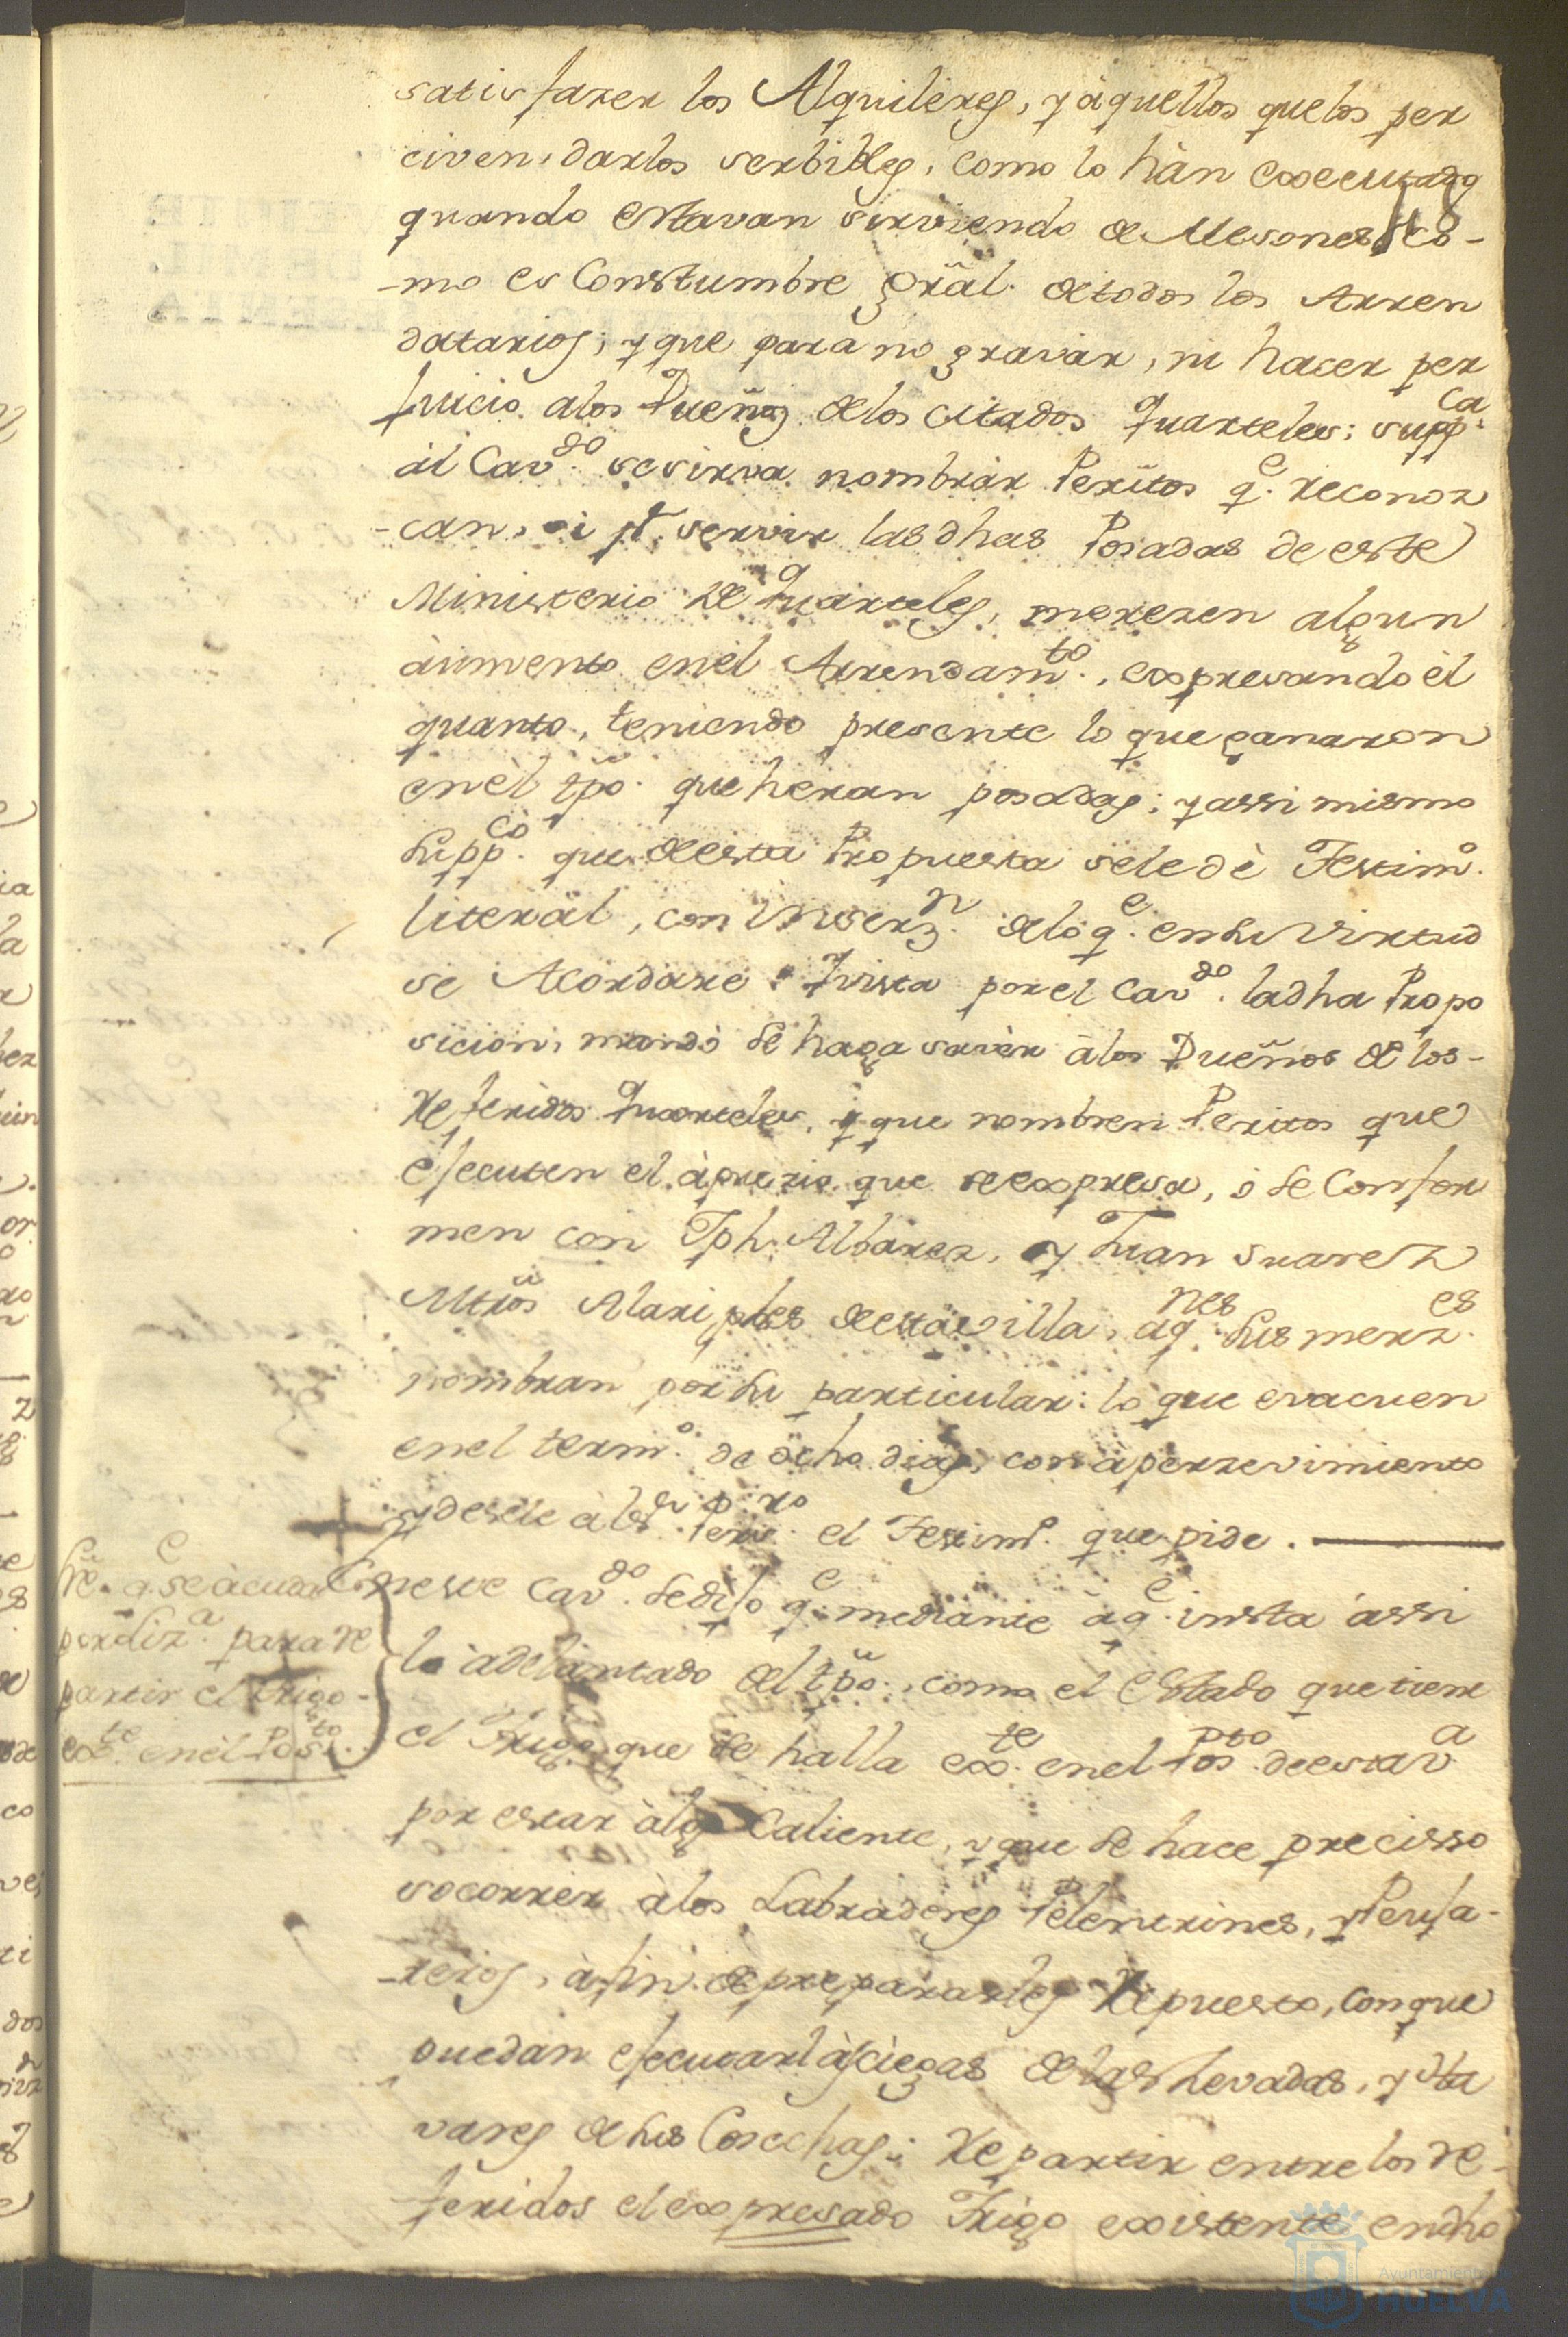 satisfazer los Alquileres, y àquellos que los per
civen, darlos serbibles, como lo hàn executado
quando estavan sirviendo de Mesones, co-
-mo es Constumbre gràl. de todos los Arren
datarios; y que para no gravar, ni hacer per
juicio a los Dueños de los citados Quarteles; suppca.
àl Cavdo. se sirva nombràr Peritos qe. reconoz
-can, si pr. servir las dhas Posadas de este
Ministerio de Quarteles, merezen algun
àumento en èl Arrendamto., expresando èl
quanto, teniendo presente lo que ganaron
en èl tpo. que heran posadas; y assi mismo
suppco. que de esta Propuesta se le dè Testimo.
literàl, con Inserzn. de lo qe. en su Virtud
se Acordare. Y vista por el Cavdo. la dha Propo
sicion, mandò se haga savèr à los Dueños de los-
referidos Quarteles, y que nombren Peritos que
ejecuten el àprezio que se expresa, ò se Confor
men con Jph. Albarez, y Juan Suarez
Mtros Alarifes de esta villa, àqnes. sus merzes.
nombran por su particular: lo que evacuen
en el termo. de òcho dias, con àperzevimiento
y desele àl Sr. el Testimo. que pide.
hè. qe. se àcuda
por liza. para re
partir el trigo
exte. en èl Posto.
En este Cavdo. se dijo qe. mediante à qe. insta àssi
lo àdelantado del tpo., como el Estado que tiene
el Trigo que se halla exte. en el Posto. de esta va.
por estar àlgo Caliente, y que se hace precisso
socorrer à los Labradores Pelentrines, y Peuja-
-reros, à fin de prepararles Repuesto, con que
puedan ejecutar las ciegas de las sevadas, y
vares de sus Cosechas; Repartir entre los re-
feridos el expresado Trigo existente en dho